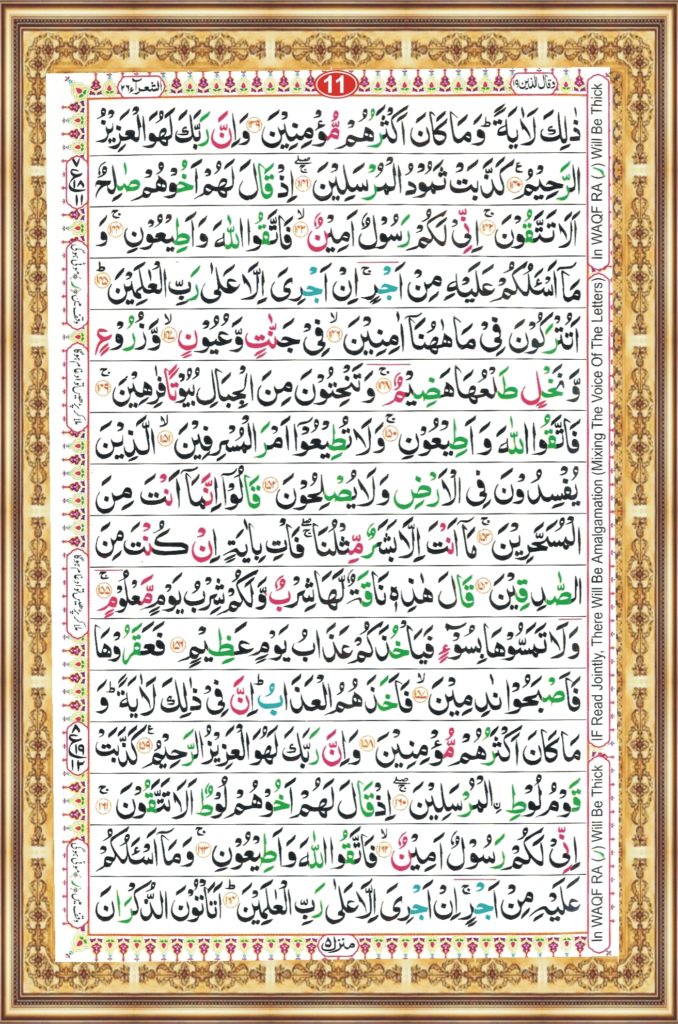 وقال الذين ١٩
11
الشعرآء ٢٦
ذٰلِكَ لَاٰيَةً ؕ وَمَا كَانَ اَكۡثَرُهُمۡ مُّؤۡمِنِيۡنَ ﴿۱۳۹﴾ وَاِنَّ رَبَّكَ لَهُوَ الۡعَزِيۡزُ
الرَّحِيۡمُ ﴿۱۴۰﴾ كَذَّبَتۡ ثَمُوۡدُ الۡمُرۡسَلِيۡنَ ﴿۱۴۱﴾ اِذۡ قَالَ لَهُمۡ اَخُوۡهُمۡ صٰلِحٌ
اَلَا تَتَّقُوۡنَ ﴿۱۴۲﴾ اِنِّىۡ لَكُمۡ رَسُوۡلٌ اَمِيۡنٌ ﴿۱۴۳﴾ فَاتَّقُوا اللّٰهَ وَاَطِيۡعُوۡنِ ﴿۱۴۴﴾ وَ
مَاۤ اَسۡـَٔـلُكُمۡ عَلَيۡهِ مِنۡ اَجۡرٍ اِنۡ اَجۡرِىَ اِلَّا عَلٰى رَبِّ الۡعٰلَمِيۡنَ ﴿۱۴۵﴾
اَتُتۡرَكُوۡنَ فِىۡ مَا هٰهُنَاۤ اٰمِنِيۡنَ ﴿۱۴۶﴾ فِىۡ جَنّٰتٍ وَّعُيُوۡنٍ ﴿۱۴۷﴾ وَّزُرُوۡعٍ
وَّنَخۡلٍ طَلۡعُهَا هَضِيۡمٌ ﴿۱۴۸﴾ وَتَنۡحِتُوۡنَ مِنَ الۡجِبَالِ بُيُوۡتًا فٰرِهِيۡنَ ﴿۱۴۹﴾
فَاتَّقُوا اللّٰهَ وَاَطِيۡعُوۡنِ ﴿۱۵۰﴾ وَلَا تُطِيۡعُوۡۤا اَمۡرَ الۡمُسۡرِفِيۡنَ ﴿۱۵۱﴾ الَّذِيۡنَ
يُفۡسِدُوۡنَ فِى الۡاَرۡضِ وَلَا يُصۡلِحُوۡنَ ﴿۱۵۲﴾ قَالُوۡۤا اِنَّمَاۤ اَنۡتَ مِنَ
الۡمُسَحَّرِيۡنَ ﴿۱۵۳﴾ مَاۤ اَنۡتَ اِلَّا بَشَرٌ مِّثۡلُنَا ۖ فَاۡتِ بِاٰيَةٍ اِنۡ كُنۡتَ مِنَ
الصّٰدِقِيۡنَ ﴿۱۵۴﴾ قَالَ هٰذِهٖ نَاقَةٌ لَّهَا شِرۡبٌ وَّلَكُمۡ شِرۡبُ يَوۡمٍ مَّعۡلُوۡمٍ ﴿۱۵۵﴾
وَلَا تَمَسُّوۡهَا بِسُوۡٓءٍ فَيَاۡخُذَكُمۡ عَذَابُ يَوۡمٍ عَظِيۡمٍ ﴿۱۵۶﴾ فَعَقَرُوۡهَا
فَاَصۡبَحُوۡا نٰدِمِيۡنَ ﴿۱۵۷﴾ فَاَخَذَهُمُ الۡعَذَابُ ؕ اِنَّ فِىۡ ذٰلِكَ لَاٰيَةً ؕ وَ
مَا كَانَ اَكۡثَرُهُمۡ مُّؤۡمِنِيۡنَ ﴿۱۵۸﴾ وَاِنَّ رَبَّكَ لَهُوَ الۡعَزِيۡزُ الرَّحِيۡمُ ﴿۱۵۹﴾ كَذَّبَتۡ
قَوۡمُ لُوۡطِ ۨالۡمُرۡسَلِيۡنَ ﴿۱۶۰﴾ اِذۡ قَالَ لَهُمۡ اَخُوۡهُمۡ لُوۡطٌ اَلَا تَتَّقُوۡنَ ﴿۱۶۱﴾
اِنِّىۡ لَكُمۡ رَسُوۡلٌ اَمِيۡنٌ ﴿۱۶۲﴾ فَاتَّقُوا اللّٰهَ وَاَطِيۡعُوۡنِ ﴿۱۶۳﴾ وَمَاۤ اَسۡـَٔـلُكُمۡ
عَلَيۡهِ مِنۡ اَجۡرٍ اِنۡ اَجۡرِىَ اِلَّا عَلٰى رَبِّ الۡعٰلَمِيۡنَ ﴿۱۶۴﴾ اَتَاۡتُوۡنَ الذُّكۡرَانَ
منزل ۵
In WAQF RA (ر) Will Be Thick
(IF Read Jointly, There Will Be Amalgamation (Mixing The Voice Of The Letters))
In WAQF RA (ر) Will Be Thick